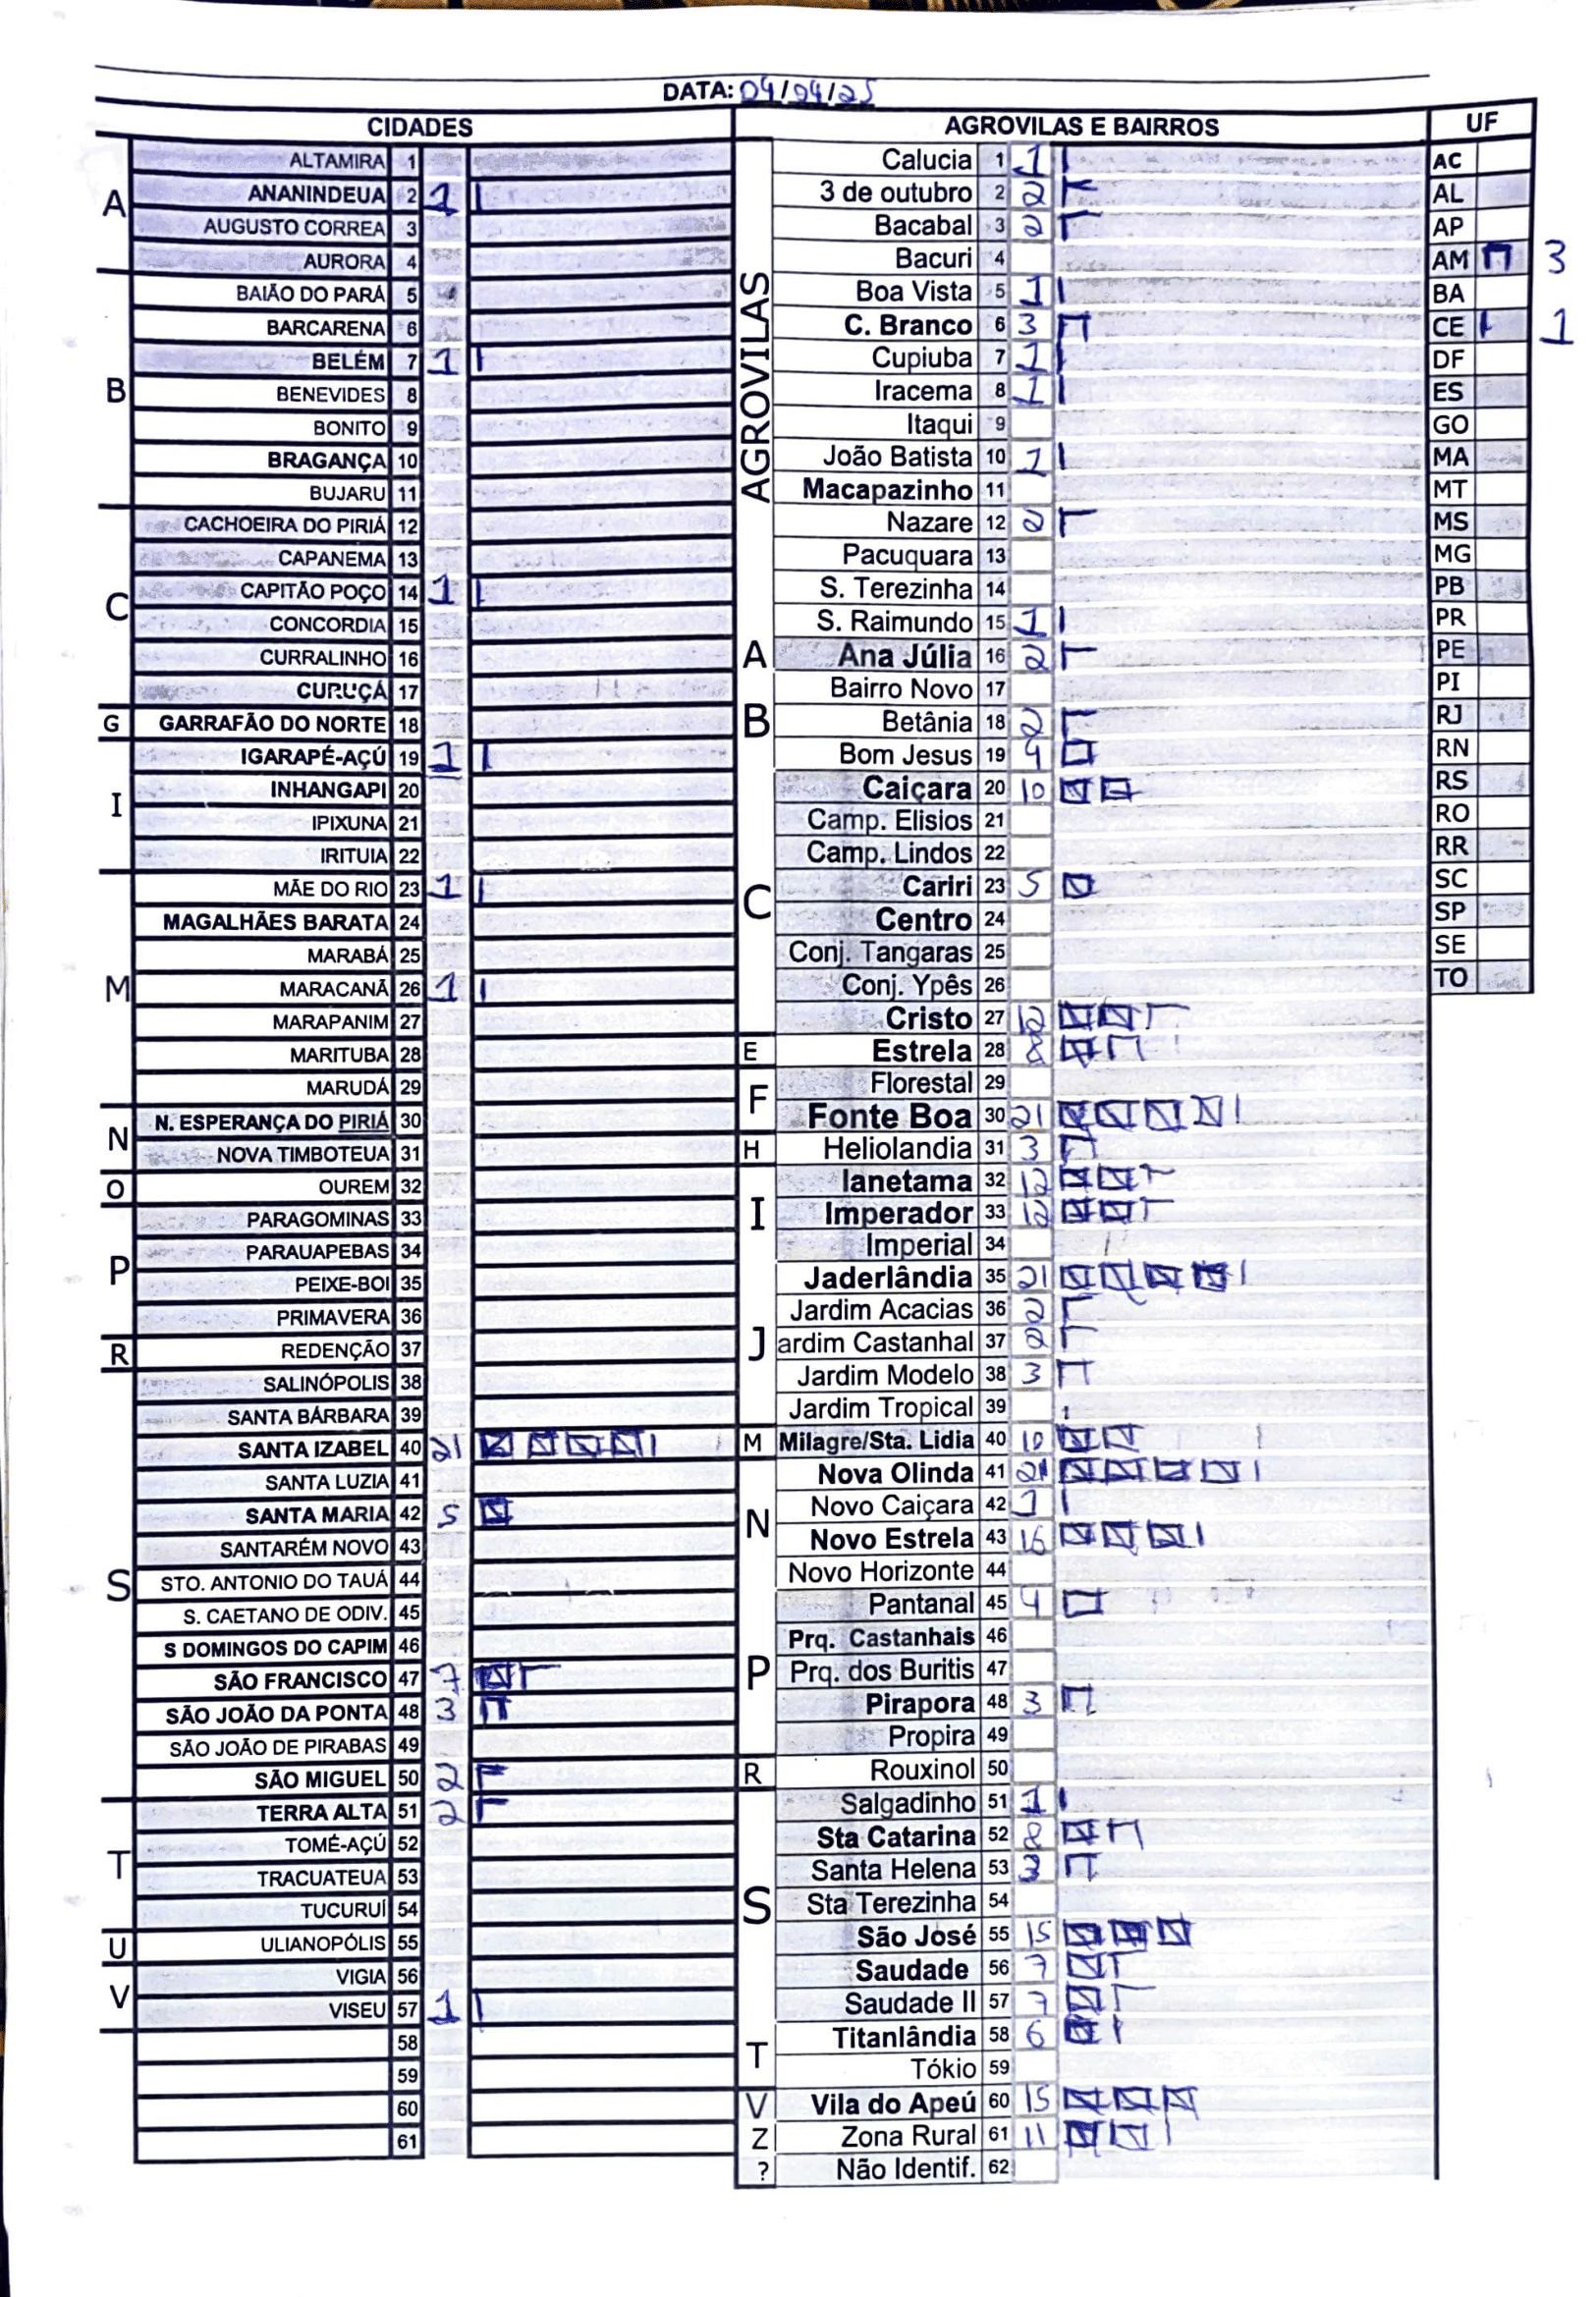 DATA: 04/04/25
CIDADES
A
ALTAMIRA 1
ANANINDEUA 2 1
AUGUSTO CORREA 3
AURORA 4
B
BAIÃO DO PARÁ 5
BARCARENA 6
BELÉM 7 1
BENEVIDES 8
BONITO 9
BRAGANÇA 10
BUJARU 11
C
CACHOEIRA DO PIRIÁ 12
CAPANEMA 13
CAPITÃO POÇO 14 1
CONCORDIA 15
CURRALINHO 16
CURUÇÁ 17
G
GARRAFÃO DO NORTE 18
I
IGARAPÉ-AÇÚ 19 1
INHANGAPI 20
IPIXUNA 21
IRITUIA 22
M
MÃE DO RIO 23 1
MAGALHÃES BARATA 24
MARABÁ 25
MARACANÃ 26 1
MARAPANIM 27
MARITUBA 28
MARUDÁ 29
N
N. ESPERANÇA DO PIRIÁ 30
NOVA TIMBOTEUA 31
O
OUREM 32
P
PARAGOMINAS 33
PARAUAPEBAS 34
PEIXE-BOI 35
PRIMAVERA 36
R
REDENÇÃO 37
S
SALINÓPOLIS 38
SANTA BÁRBARA 39
SANTA IZABEL 40 21
SANTA LUZIA 41
SANTA MARIA 42 5
SANTARÉM NOVO 43
STO. ANTONIO DO TAUÁ 44
S. CAETANO DE ODIV. 45
S DOMINGOS DO CAPIM 46
SÃO FRANCISCO 47 7
SÃO JOÃO DA PONTA 48 3
SÃO JOÃO DE PIRABAS 49
SÃO MIGUEL 50 2
T
TERRA ALTA 51 2
TOMÉ-AÇÚ 52
TRACUATEUA 53
TUCURUÍ 54
U
ULIANOPÓLIS 55
V
VIGIA 56
VISEU 57 1
58
59
60
61
AGROVILAS E BAIRROS
AGROVILAS
Calucia 1 1
3 de outubro 2 2
Bacabal 3 2
Bacuri 4
Boa Vista 5 1
C. Branco 6 3
Cupiuba 7 1
Iracema 8 1
Itaqui 9
João Batista 10 1
Macapazinho 11
Nazare 12 2
Pacuquara 13
S. Terezinha 14
S. Raimundo 15 1
A
Ana Júlia 16 2
Bairro Novo 17
B
Betânia 18 2
Bom Jesus 19 4
C
Caiçara 20 10
Camp. Elisios 21
Camp. Lindos 22
Cariri 23 5
Centro 24
Conj. Tangaras 25
Conj. Ypês 26
Cristo 27 12
E
Estrela 28 8
F
Florestal 29
Fonte Boa 30 21
H
Heliolandia 31 3
I
Ianetama 32 12
Imperador 33 12
Imperial 34
J
Jaderlândia 35 21
Jardim Acacias 36 2
ardim Castanhal 37 2
Jardim Modelo 38 3
Jardim Tropical 39
M
Milagre/Sta. Lidia 40 10
N
Nova Olinda 41 21
Novo Caiçara 42 1
Novo Estrela 43 16
Novo Horizonte 44
P
Pantanal 45 4
Prq. Castanhais 46
Prq. dos Buritis 47
Pirapora 48 3
Propira 49
R
Rouxinol 50
S
Salgadinho 51 1
Sta Catarina 52 8
Santa Helena 53 3
Sta Terezinha 54
São José 55 15
Saudade 56 7
Saudade II 57 7
T
Titanlândia 58 6
Tókio 59
V
Vila do Apeú 60 15
Z
Zona Rural 61 11
?
Não Identif. 62
UF
AC
AL
AP
AM 3
BA
CE 1
DF
ES
GO
MA
MT
MS
MG
PB
PR
PE
PI
RJ
RN
RS
RO
RR
SC
SP
SE
TO